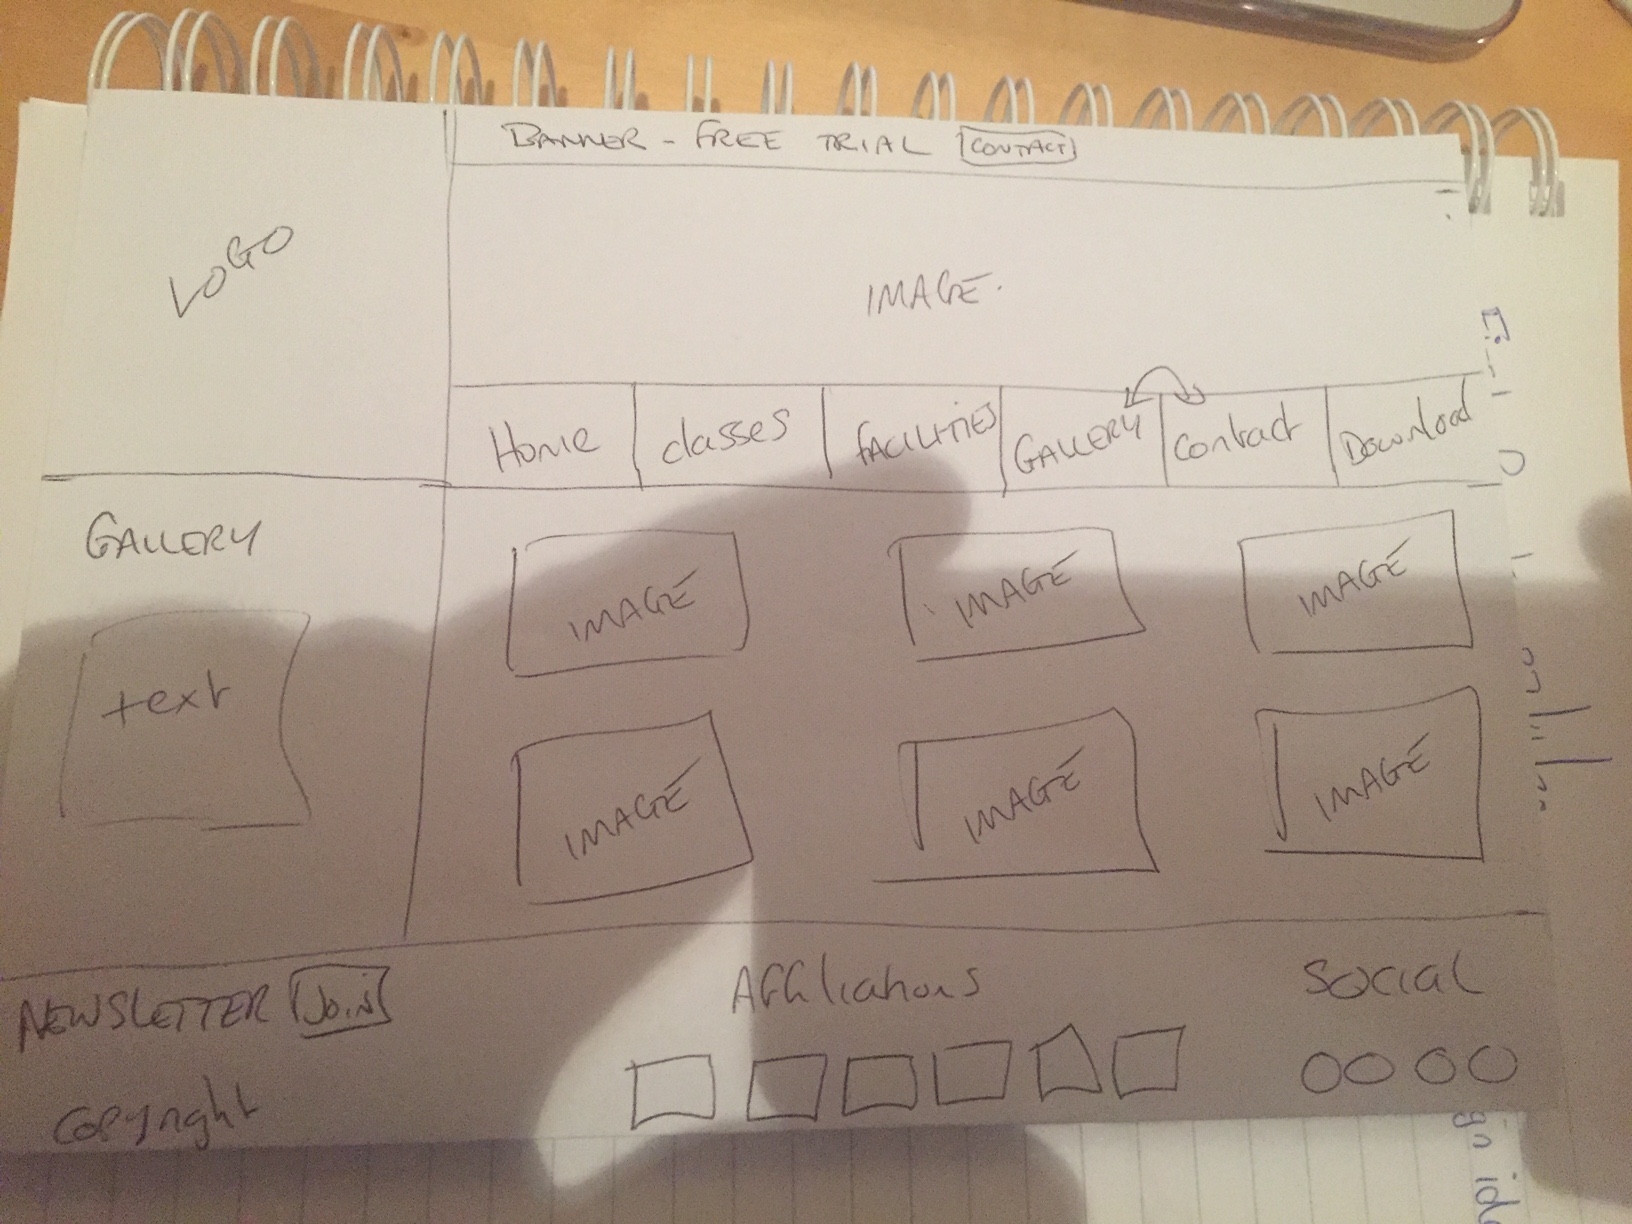 BANNER - FREE TRIAL CONTACT
LOGO
IMAGE.
Home classes FACILITIES GALLERY Contact Download
GALLERY
text
IMAGE IMAGE IMAGE
IMAGE IMAGE IMAGE
NEWSLETTER JOIN
Affiliations
SOCIAL
Copyright